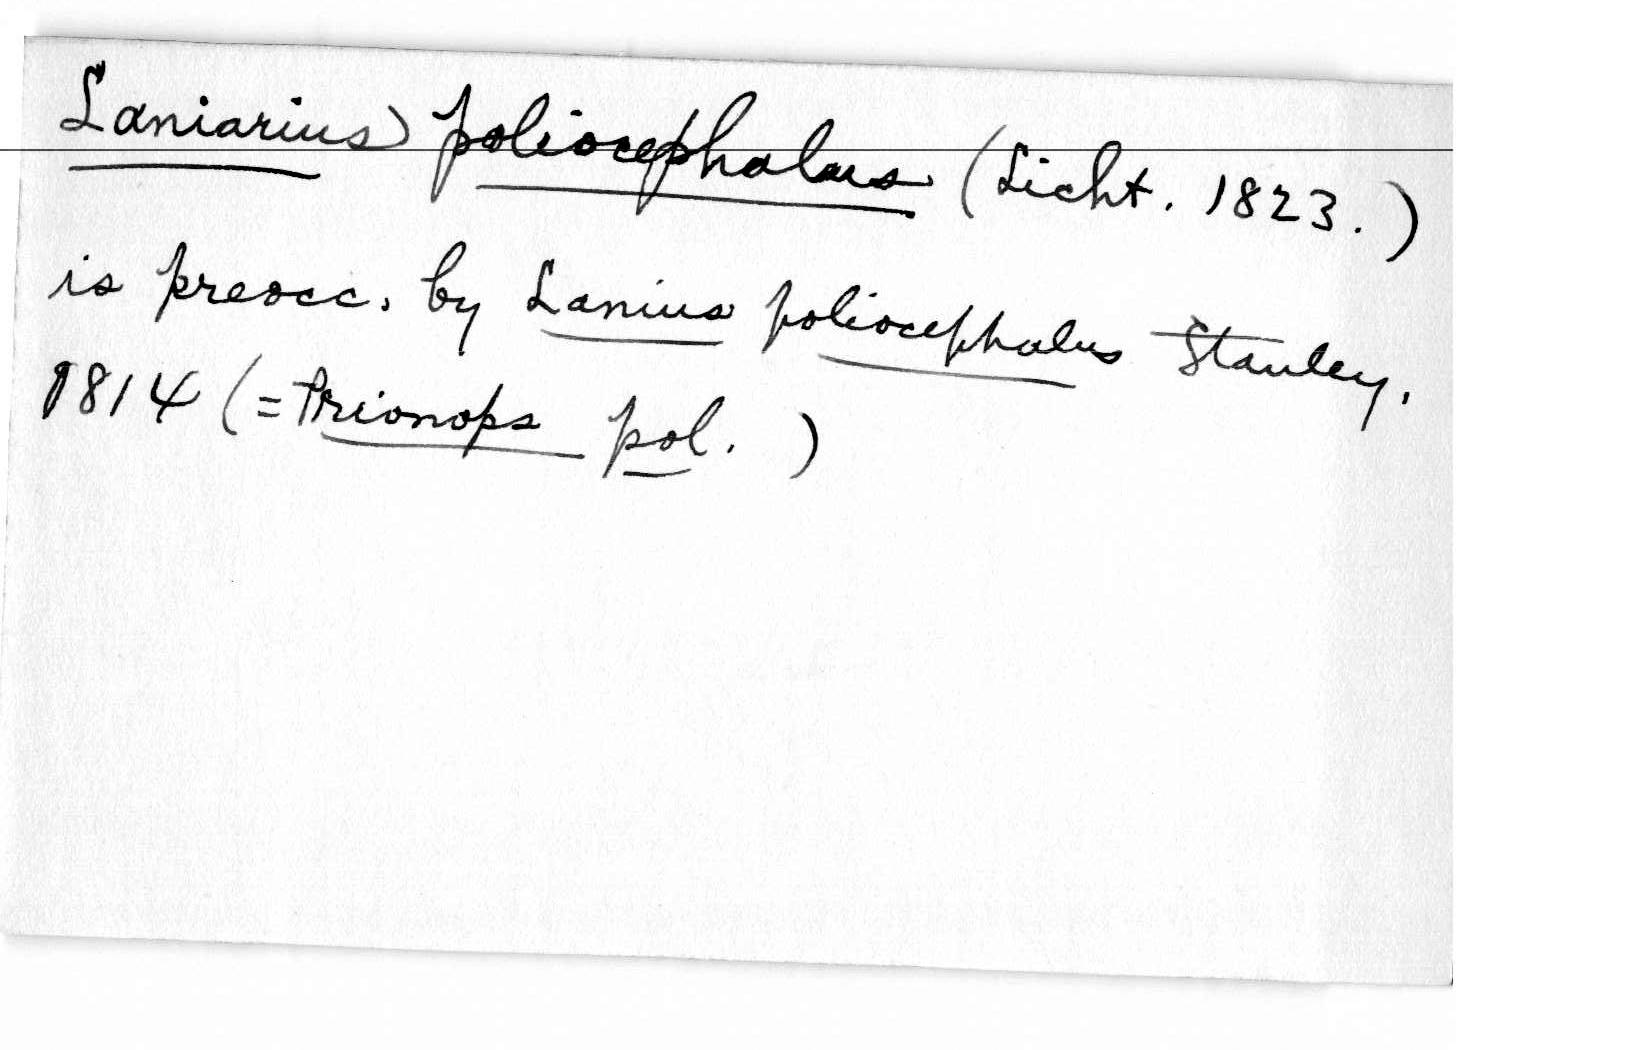 Laniarius poliocephalus (Licht. 1823.)
is preocc. by Lanius poliocephalus Stanley.
1814 (= Prionops pol. )